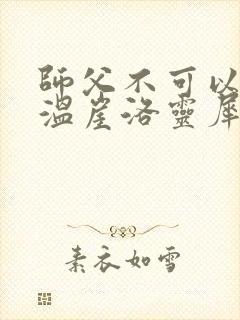 師父不可以
溫崖洛靈犀
素衣如雪